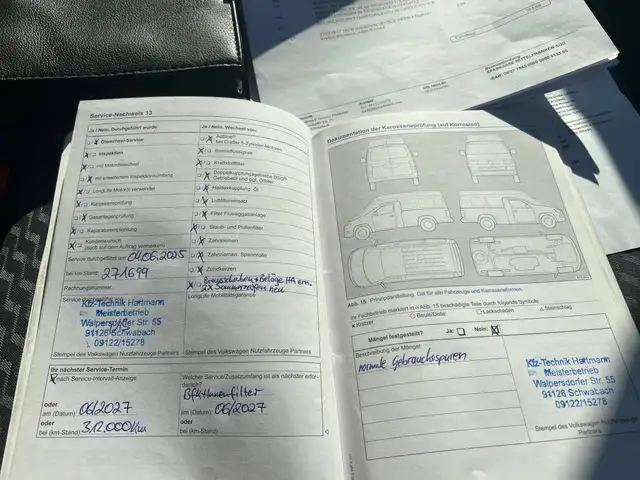 SPARKASSE MITTELFRANKEN-SÜD
Service-Nachweis 13
Ja / Nein, Durchgeführt wurde:
Ölwechsel-Service
Inspektion
mit Motorölwechsel
mit erweitertem Inspektionsumfang
LongLife Motoröl verwendet
Karosserieprüfung
Gasanlagenprüfung
Reparaturempfehlung
Kundenwunsch
(auch auf dem Auftrag vermerken)
Service durchgeführt am: 04.06.2025
bei km-Stand: 271699
Rechnungsnummer:
Kfz-Technik Hartmann
Meisterbetrieb
Walpersdorfer Str. 55
91126 Schwabach
09122/15278
Stempel des Volkswagen Nutzfahrzeuge Partners
Ja / Nein, Wechsel von:
AdBlue®
bei Crafter 5-Zylinder-Motoren
Bremsflüssigkeit
Kraftstofffilter
Doppelkupplungsgetriebe DSG®
Getriebeöl und ggf. Ölfilter
Haldexkupplung: Öl
Luftfiltereinsatz
Filter Flüssiggasanlage
Staub- und Pollenfilter
Zahnriemen
Zahnriemen: Spannrolle
Zündkerzen
Bremsscheiben + Beläge HA ern.
2x Sommerreifen neu
LongLife Mobilitätsgarantie
Stempel des Volkswagen Nutzfahrzeuge Partners
Ihr nächster Service-Termin
nach Service-Intervall-Anzeige
oder
am (Datum) 06/2027
oder
bei (km-Stand) 312.000Km
Welcher Service/Zusatzumfang ist als nächster erforderlich?
Bfk+Innenfilter
oder
am (Datum) 06/2027
Dokumentation der Karosserieprüfung (auf Korrosion)
Abb. 15 Prinzipdarstellung. Gilt für alle Fahrzeuge und Karosserieformen.
Ihr Fachbetrieb markiert in Abb. 15 beschädigte Teile durch folgende Symbole:
x Kratzer
○ Beule/Delle
□ Lackschaden
△ Steinschlag
Mängel festgestellt? Ja: Nein:
Beschreibung der Mängel:
normale Gebrauchsspuren
Kfz-Technik Hartmann
Meisterbetrieb
Walpersdorfer Str. 55
91126 Schwabach
09122/15278
Stempel des Volkswagen Nutzfahrzeuge
Partners